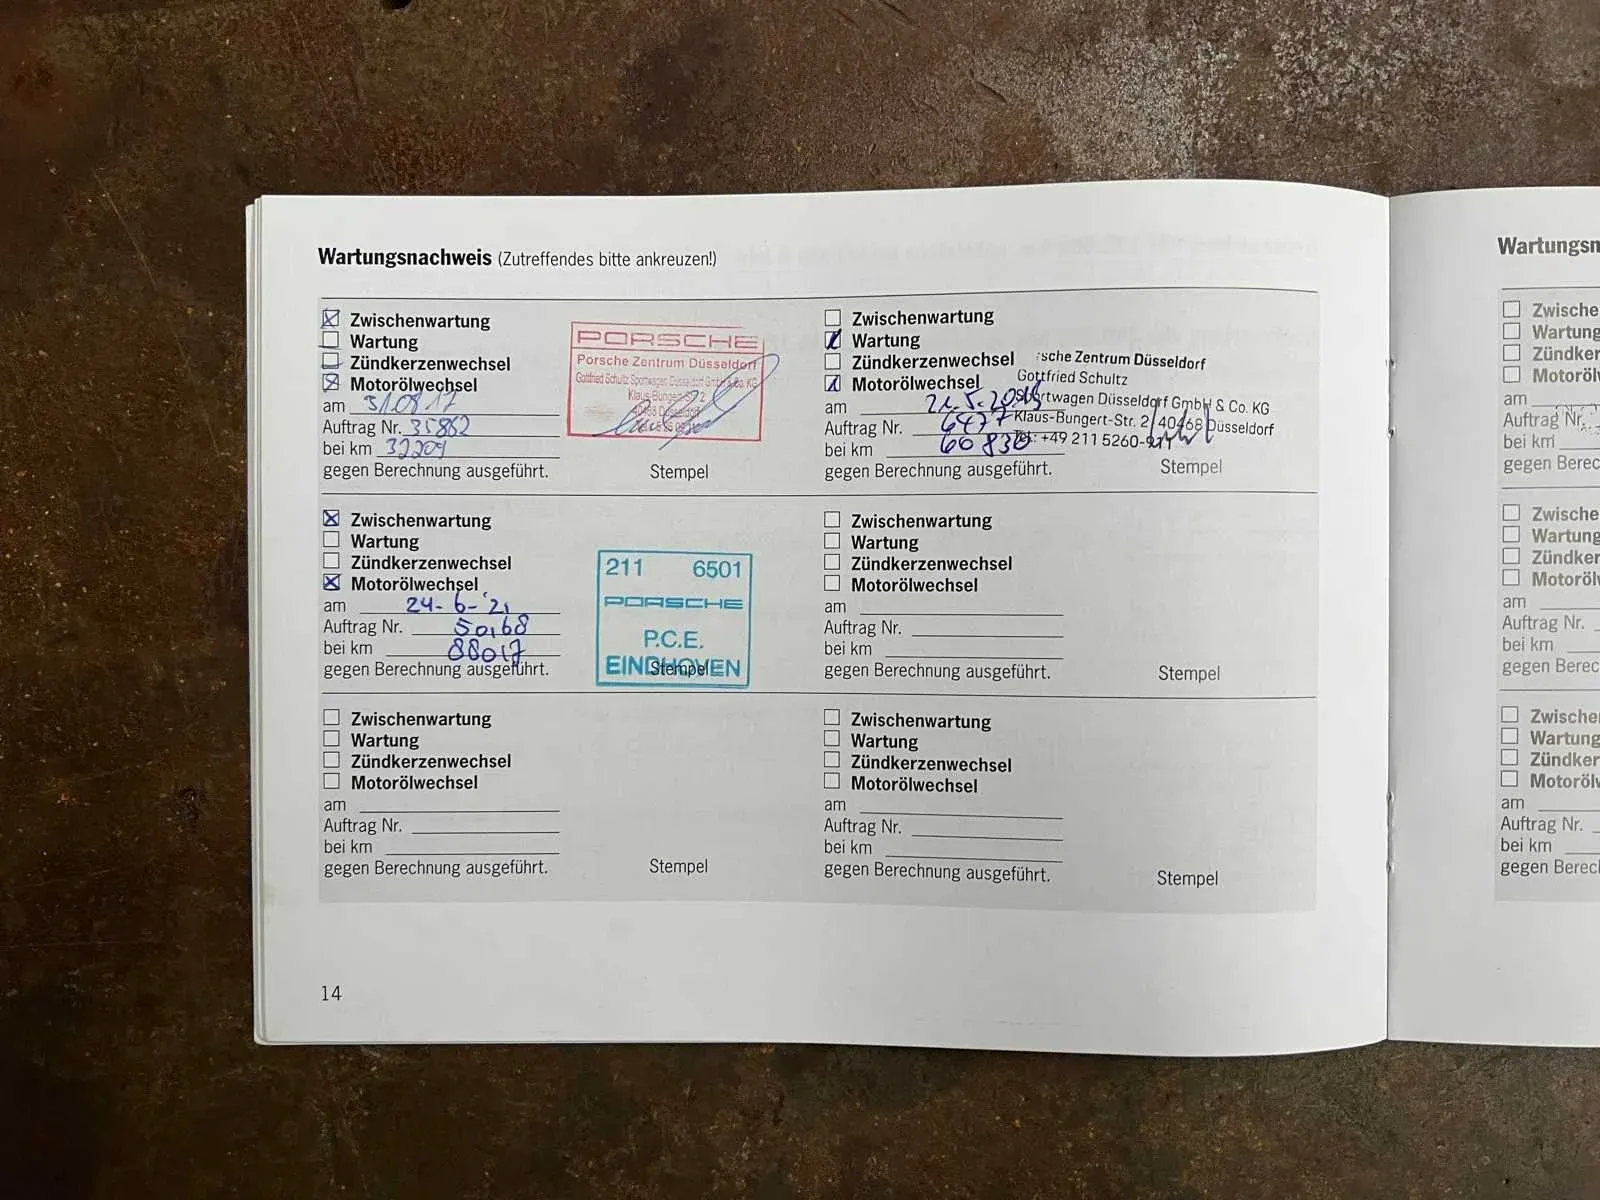 Wartungsnachweis (Zutreffendes bitte ankreuzen!)
Zwischenwartung
Wartung
Zündkerzenwechsel
Motorölwechsel
am 31.08.17
Auftrag Nr. 35862
bei km 32209
gegen Berechnung ausgeführt.
Stempel
PORSCHE
Porsche Zentrum Düsseldorf
Gottfried Schultz Sportwagen Düsseldorf GmbH & Co. KG
Klaus-Bungert-Str. 2
40468 Düsseldorf
Zwischenwartung
Wartung
Zündkerzenwechsel
Motorölwechsel
am 21.5.2019
Auftrag Nr. 6477
bei km 60830
gegen Berechnung ausgeführt.
Stempel
sche Zentrum Düsseldorf
Gottfried Schultz
Sportwagen Düsseldorf GmbH & Co. KG
Klaus-Bungert-Str. 2 40468 Düsseldorf
Tel.: +49 211 5260-911
Zwischenwartung
Wartung
Zündkerzenwechsel
Motorölwechsel
am 24-6-'21
Auftrag Nr. 50168
bei km 88017
gegen Berechnung ausgeführt.
Stempel
211 6501
PORSCHE
P.C.E.
EINDHOVEN
Zwischenwartung
Wartung
Zündkerzenwechsel
Motorölwechsel
am
Auftrag Nr.
bei km
gegen Berechnung ausgeführt.
Stempel
Zwischenwartung
Wartung
Zündkerzenwechsel
Motorölwechsel
am
Auftrag Nr.
bei km
gegen Berechnung ausgeführt.
Stempel
Zwischenwartung
Wartung
Zündkerzenwechsel
Motorölwechsel
am
Auftrag Nr.
bei km
gegen Berechnung ausgeführt.
Stempel
14
Wartungsn
Zwische
Wartung
Zündker
Motoröl
am
Auftrag Nr.
bei km
gegen Berec
Zwische
Wartung
Zündker
Motoröl
am
Auftrag Nr.
bei km
gegen Berec
Zwische
Wartung
Zündker
Motoröl
am
Auftrag Nr.
bei km
gegen Berec